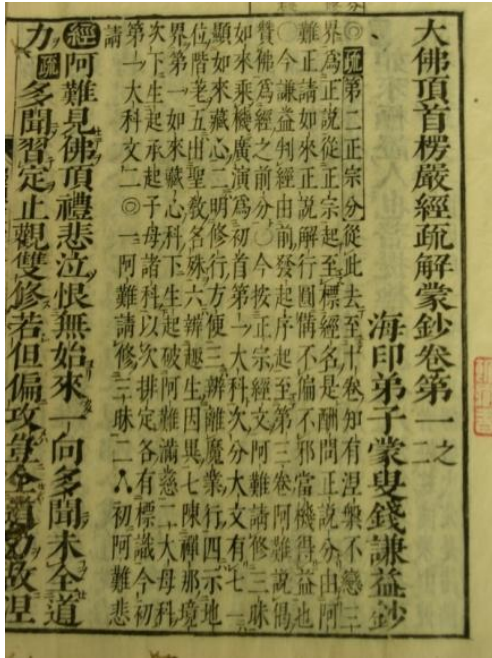 大佛頂首楞嚴經疏解蒙鈔卷第一之二
海印弟子蒙叟錢謙益鈔
◎疏第二正宗分從此去至十卷知有涅槃不戀三
界爲正說從正宗起至標經名是酬問正說分由阿
難正請如來正說解行圓備不偏不邪當機得益也
〇今謙益判經由前發起序起至第三卷阿難說偈
贊佛爲經之前分〇今按正宗經文阿難請修三昧
如來乘機廣演爲初首第一大科次分大文有七一
顯如來藏心二明修行方便三辨離魔業行四示地
位階差五出聖教名殊六辨趣生因異七陳禪那境
界第一如來藏心科下生起破阿難滿慈二大母科
次下生起承起子母諸科以次排定各有標識今初
第一大科文二◎一阿難請修三昧二八初阿難悲
請
經阿難見佛頂禮悲泣恨無始來一向多聞未全道
力疏多聞習定止觀雙修若但偏攻豈全道力故涅